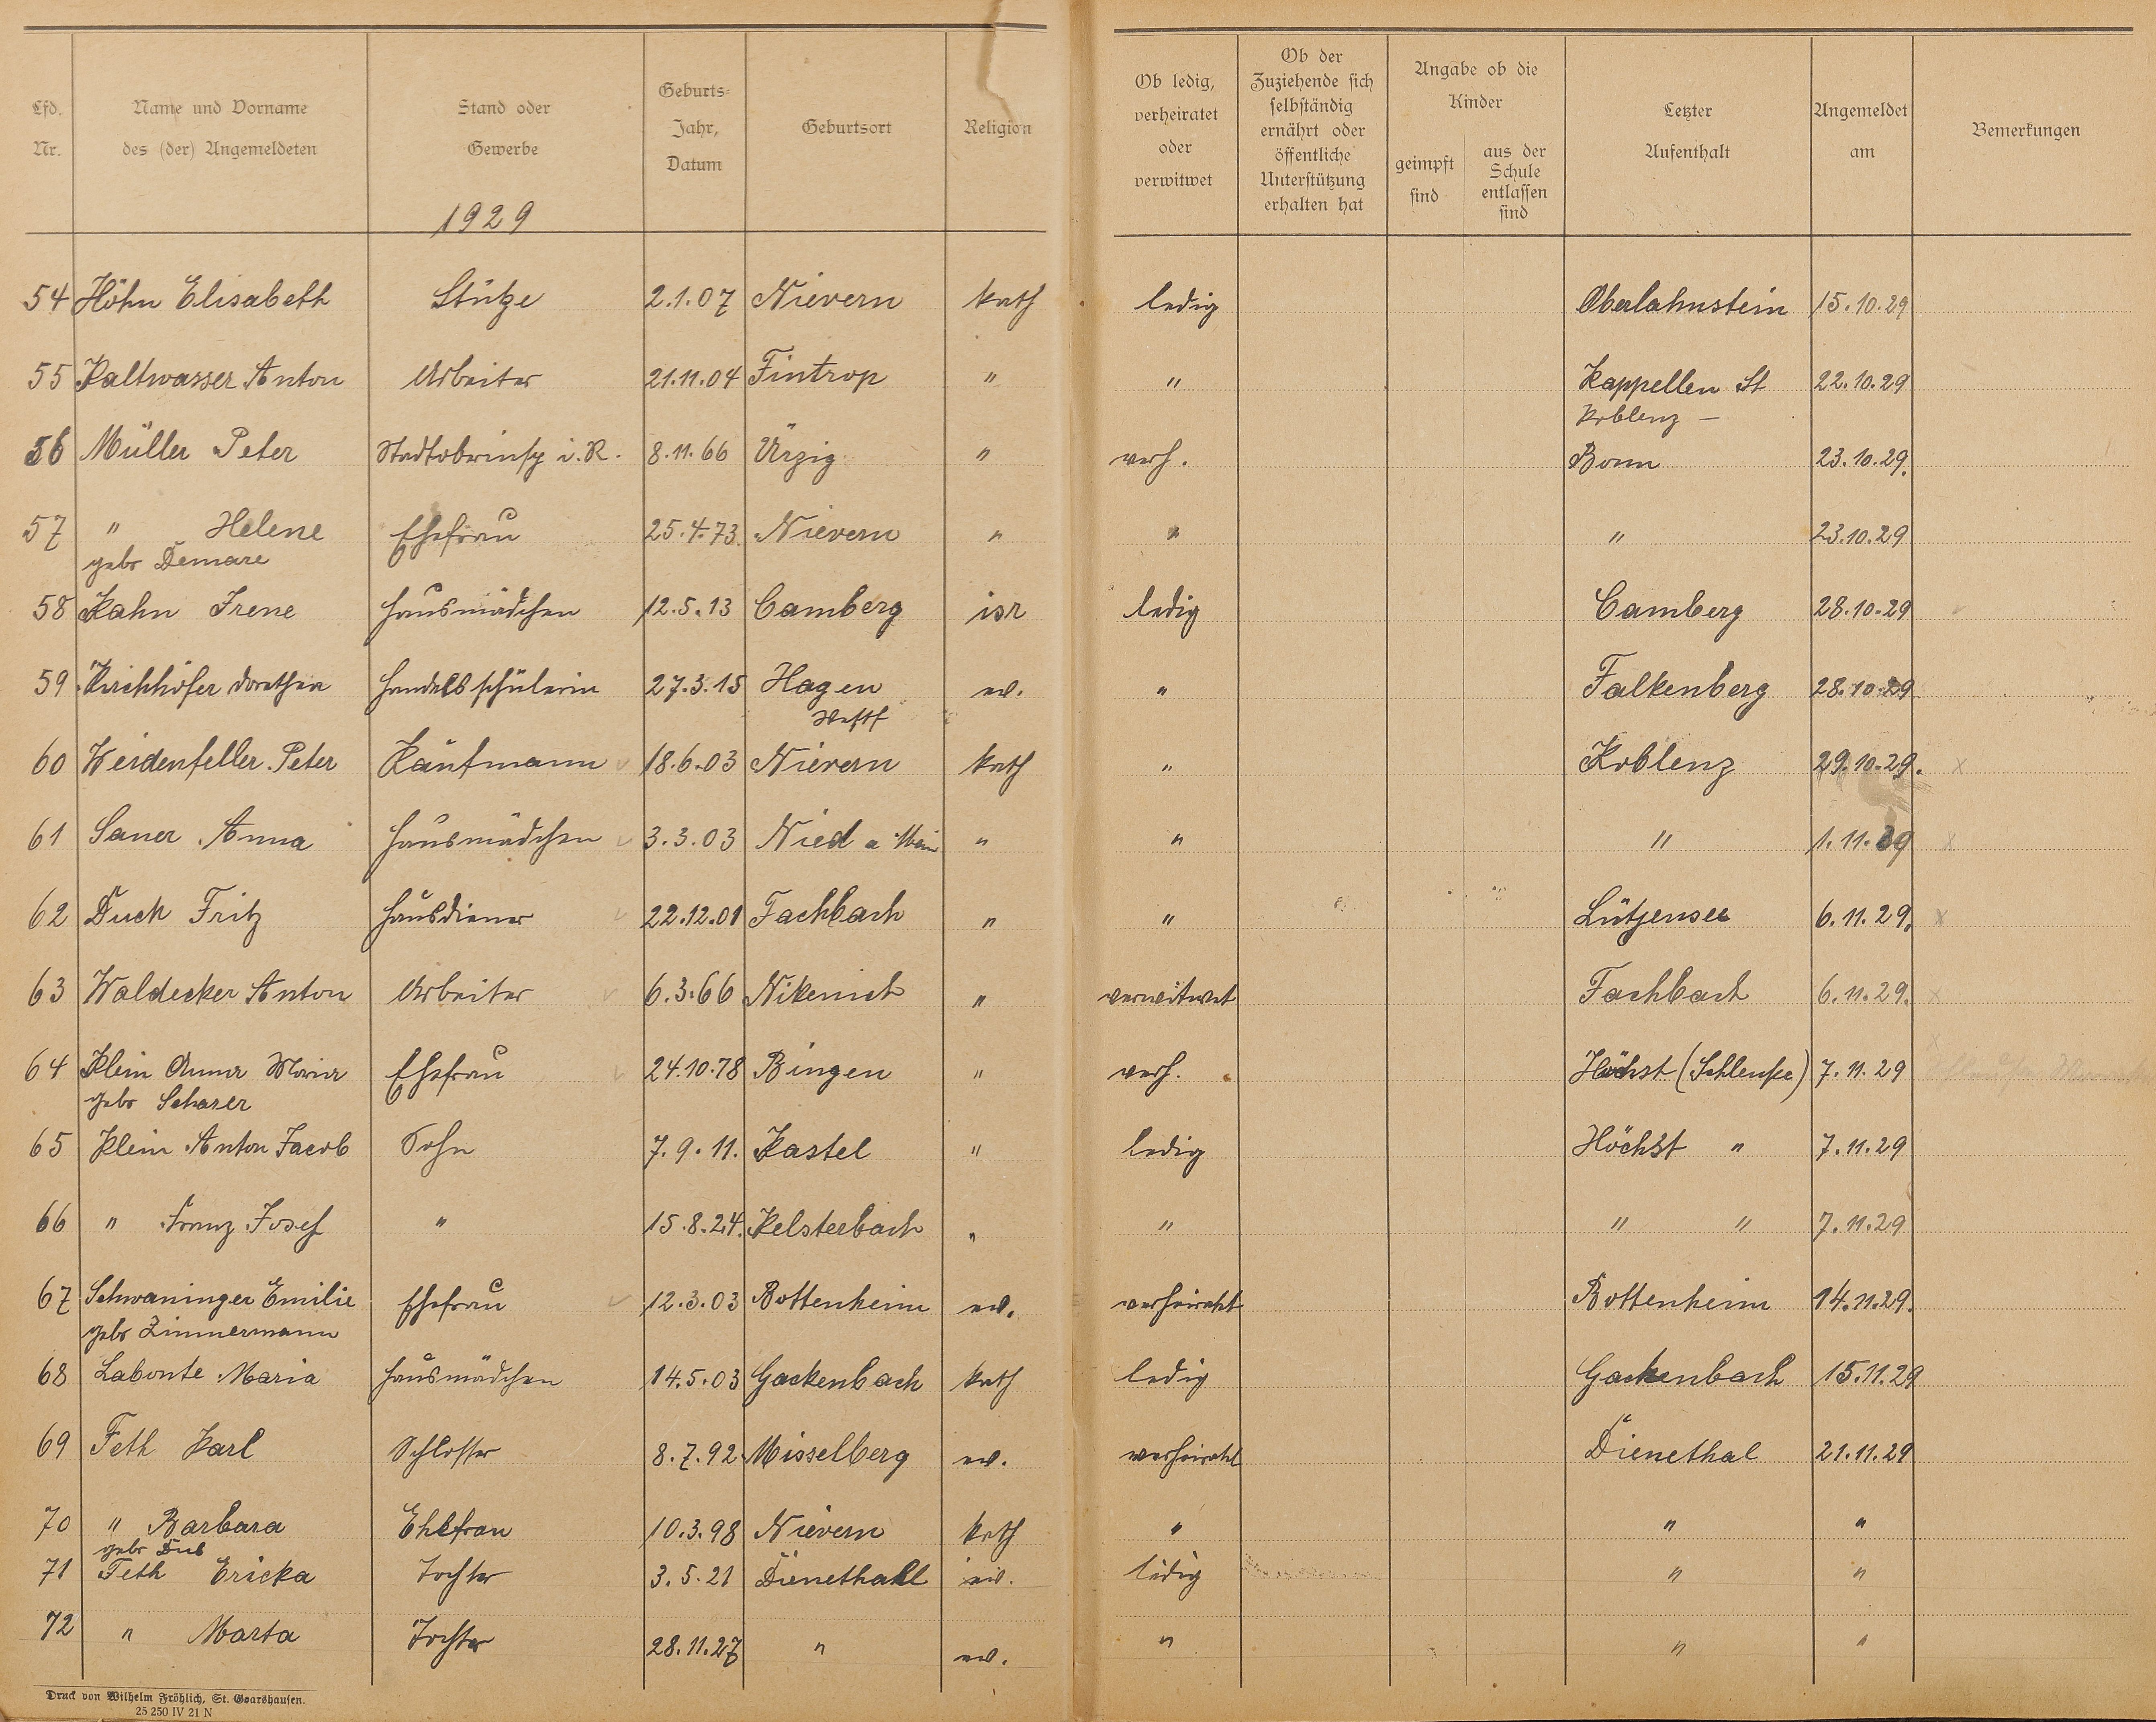 Lfd. Nr.
Name und Vorname des (der) Angemeldeten
Stand oder Gewerbe
Geburts-Jahr, Datum
Geburtsort
Religion
Ob ledig, verheiratet oder verwitwet
Ob der Zuziehende sich selbständig ernährt oder öffentliche Unterstützung erhalten hat
Angabe ob die Kinder
geimpft sind
aus der Schule entlassen sind
Letzter Aufenthalt
Angemeldet am
Bemerkungen
1929
54 Höhn Elisabeth Stütze 2.1.07 Nievern kath ledig Oberlahnstein 15.10.29
55 Kaltwasser Anton Arbeiter 21.11.04 Fintrop " " Kappellen St 22.10.29
Koblenz –
56 Müller Peter Stadtobrinsp i. R. 8.11.66 Ürzig " verh. Bonn 23.10.29.
57 " Helene Ehefrau 25.4.73. Nievern " " " 23.10.29
gebr Demare
58 Kahn Irene Hausmädchen 12.5.13 Camberg isr ledig Camberg 28.10.29
59 Kirchhöfer Dorothea Handelsschülerin 27.3.15 Hagen ev. " Falkenberg 28.10.29
Westf
60 Weidenfeller Peter Kaufmann 18.6.03 Nievern kath " Koblenz 29.10.29. x
61 Saner Anna Hausmädchen 3.3.03 Nied a Main " " " 1.11.29 x
62 Duck Fritz Hausdiener 22.12.01 Fachbach " " Lütjensee 6.11.29. x
63 Waldecker Anton Arbeiter 6.3.66 Nikenich " verwitwet Fachbach 6.11.29. x
64 Klein Anna Maria Ehefrau 24.10.78 Bingen " verh. Höchst 7.11.29 x
gebr Scharer
65 Klein Anton Jacob Sohn 7.9.11. Kastel " ledig Höchst " 7.11.29
66 " Franz Josef " 15.8.24. Kelsterbach " " " " 7.11.29
67 Schwaninger Emilie Ehefrau 12.3.03 Bottenheim ev. verheiratet Bottenheim 14.11.29.
gebr Zimmermann
68 Labonte Maria Hausmädchen 14.5.03 Gackenbach kath ledig Gackenbach 15.11.29
69 Feth Karl Schlosser 8.7.92 Misselberg ev. verheirahl Dienethal 21.11.29
70 " Barbara Ehefrau 10.3.98 Nievern kath " " "
gebr Dub
71 Feth Ericka Tochter 3.5.21 Dienethall ev. ledig " "
72 " Marta Tochter 28.11.27 " ev. " " "
Druck von Wilhelm Fröhlich, St. Goarshausen.
25 250 IV 21 N